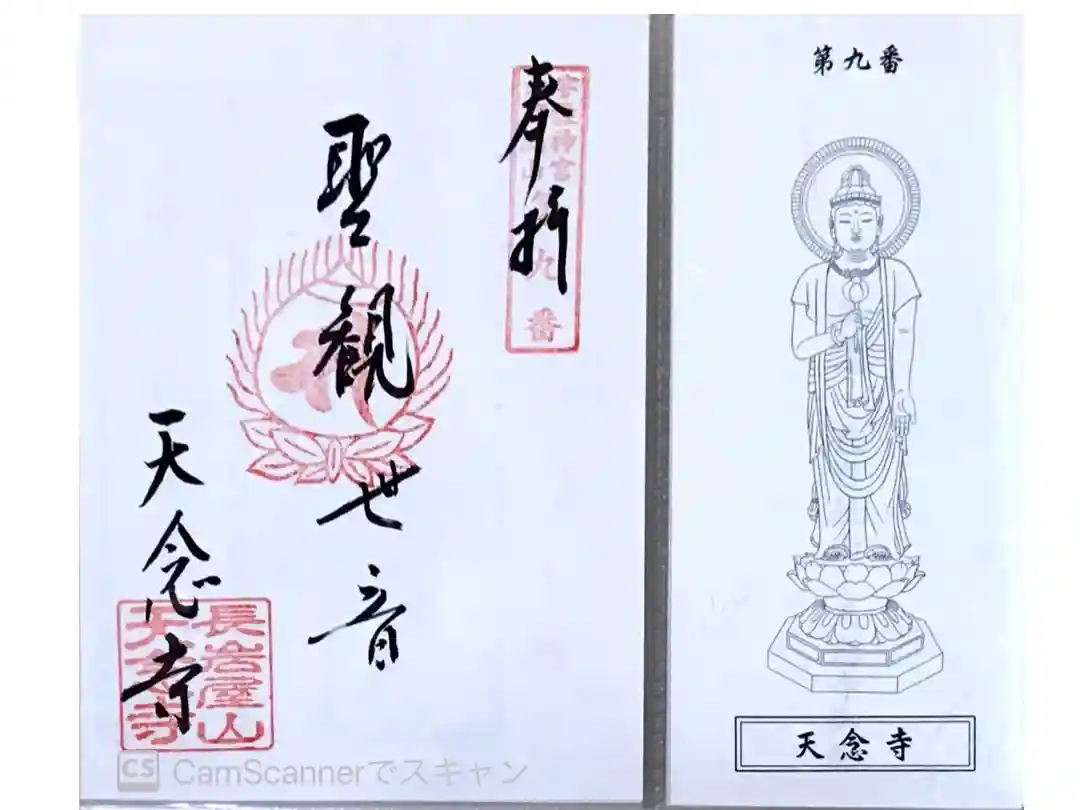 奉拝
宇佐神宮
九番
聖観世音
天念寺
長岩屋山
天念寺
第九番
天念寺
CS CamScannerでスキャン